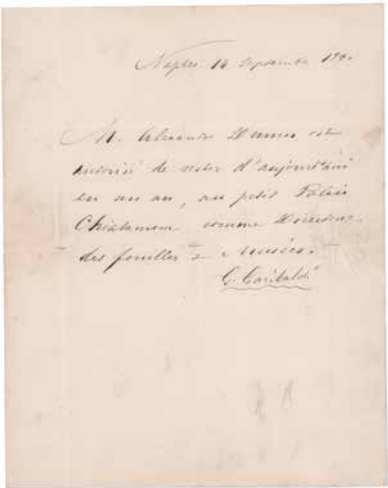 Naples 14 septembre 1860
M. Alexandre Dumas est
autorisé de rester d'aujourd'hui
en un an, au petit Palais
Chiatamone comme Directeur
des fouilles & Musées.
G. Garibaldi